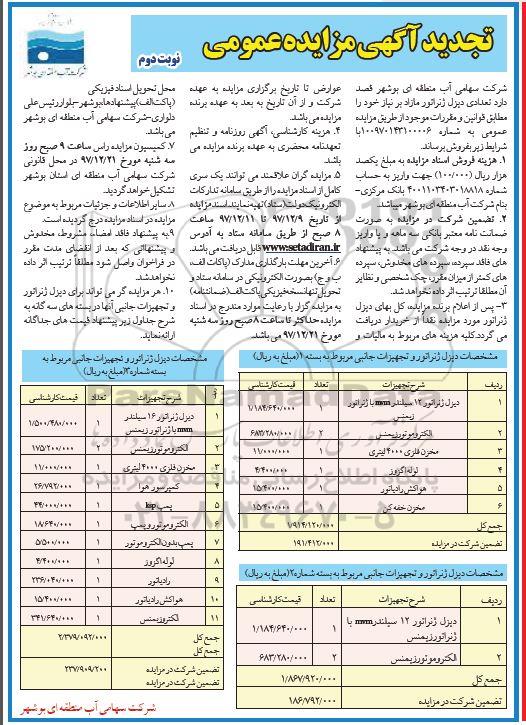 تجدید آگهی مزایده عمومی
نوبت دوم
شرکت آب منطقه ای بوشهر
شرکت سهامی آب منطقه ای بوشهر قصد
دارد تعدادی دیزل ژنراتور مازاد بر نیاز خود را
مطابق قوانین و مقررات موجود از طریق مزایده
عمومی به شماره ۱۰۰۹۷۰۱۴۳۱۰۰۰۰۶ با
شرایط زیر بفروش برساند.
۱. هزینه فروش اسناد مزایده به مبلغ یکصد
هزار ریال (۱۰۰/۰۰۰) جهت واریز به حساب
شماره ۴۰۰۱۱۰۳۴۰۳۰۱۸۸۱۸ بانک مرکزی-
بنام شرکت آب منطقه ای بوشهر میباشد.
۲. تضمین شرکت در مزایده به صورت
ضمانت نامه معتبر بانکی سه ماهه و یا واریز
وجه نقد در وجه شرکت می باشد. به پیشنهاد
های فاقد سپرده، سپرده های مخدوش، سپرده
های کمتر از میزان مقرر، چک شخصی و نظایر
آن مطلقا ترتیب اثر داده نخواهد شد.
۳- پس از اعلام برنده مزایده، کل بهای دیزل
ژنراتور مورد مزایده نقداً از خریدار دریافت
می گردد. کلیه هزینه های مربوط به مالیات و
عوارض تا تاریخ برگزاری مزایده به عهده
شرکت و از آن تاریخ به بعد به عهده برنده
مزایده می باشد.
۴. هزینه کارشناسی، آگهی روزنامه و تنظیم
تعهدنامه محضری به عهده برنده مزایده می
باشد
۵. مزایده گران علاقمند می توانند یک سری
کامل از اسناد مزایده را از طریق سامانه تدارکات
الکترونیک دولت(ستاد) تهیه نمایند اسناد مزایده
از تاریخ ۹۷/۱۲/۹ تا ۹۷/۱۲/۱۱ ساعت
۸ صبح از طریق سامانه ستاد به آدرس
www.setadiran.ir قابل دریافت می باشد.
۶. آخرین مهلت بارگذاری مدارک (پاکات الف،
ب و ج) بصورت الکترونیکی در سامانه ستاد و
تحویل تنها نسخه فیزیکی پاکت الف (ضمانتنامه)
به مزایده گزار با رعایت موارد مندرج در اسناد
مزایده حداکثر تا ساعت ۸ صبح روز سه شنبه
مورخ ۹۷/۱۲/۲۱ می باشد.
محل تحویل اسناد فیزیکی
(پاکت الف) پیشنهادها، بوشهر-بلوار رئیس علی
دلواری-شرکت سهامی آب منطقه ای بوشهر
می باشد.
۷. کمیسیون مزایده راس ساعت ۹ صبح روز
سه شنبه مورخ ۹۷/۱۲/۲۱ در محل قانونی
شرکت سهامی آب منطقه ای استان بوشهر
تشکیل خواهد گردید.
۸. سایر اطلاعات و جزئیات مربوط به موضوع
مزایده در اسناد مزایده درج گردیده است.
۹. به پیشنهاد فاقد امضاء، مشروط، مخدوش
و پیشنهاداتی که بعد از انقضای مدت مقرر
در فراخوان واصل شود مطلقاً ترتیب اثر داده
نخواهد شد.
۱۰. هر مزایده گر می تواند برای دیزل ژنراتور
و تجهیزات جانبی آنها در بسته های سه گانه به
شرح جداول زیر پیشنهاد قیمت های جداگانه
ارائه نماید.
مشخصات دیزل ژنراتور و تجهیزات جانبی مربوط به بسته ۱ (مبلغ به ریال)
ردیف شرح تجهیزات تعداد قیمت کارشناسی
۱ دیزل ژنراتور ۱۲ سیلندر mwm با ژنراتور زیمنس ۱ ۱/۱۸۴/۶۴۰/۰۰۰
۲ الکتروموتور زیمنس ۲ ۶۸۳/۲۸۰/۰۰۰
۳ مخزن فلزی ۴۰۰۰ لیتری ۱ ۱۱/۰۰۰/۰۰۰
۴ لوله اگزوز ۱ ۴/۴۰۰/۰۰۰
۵ هواکش رادیاتور ۱ ۱۵/۴۰۰/۰۰۰
۶ مخزن خفه کن ۱ ۱۵/۴۰۰/۰۰۰
جمع کل ۱/۹۱۴/۱۲۰/۰۰۰
تضمین شرکت در مزایده ۱۹۱/۴۱۲/۰۰۰
مشخصات دیزل ژنراتور و تجهیزات جانبی مربوط به بسته شماره ۲ (مبلغ به ریال)
ردیف شرح تجهیزات تعداد قیمت کارشناسی
۱ دیزل ژنراتور ۱۲ سیلندر mwm با ژنراتور زیمنس ۱ ۱/۱۸۴/۶۴۰/۰۰۰
۲ الکتروموتور زیمنس ۲ ۶۸۳/۲۸۰/۰۰۰
جمع کل ۱/۸۶۷/۹۲۰/۰۰۰
تضمین شرکت در مزایده ۱۸۶/۷۹۲/۰۰۰
مشخصات دیزل ژنراتور و تجهیزات جانبی مربوط به
بسته شماره ۳ (مبلغ به ریال)
شرح تجهیزات تعداد قیمت کارشناسی
۱ دیزل ژنراتور ۱۶ سیلندر mwm با ژنراتور زیمنس ۱ ۱/۵۰۰/۴۸۰/۰۰۰
۲ الکتروموتور زیمنس ۲ ۱۷۵/۲۰۰/۰۰۰
۳ مخزن فلزی ۴۰۰۰ لیتری ۱ ۱۱/۰۰۰/۰۰۰
۴ کمپرسور هوا ۱ ۲۶/۷۹۲/۰۰۰
۵ پمپ ksp ۱ ۴۴/۰۰۰/۰۰۰
۶ الکتروموتور و پمپ ۱ ۱۸/۶۴۰/۰۰۰
۷ پمپ بدون الکتروموتور ۱ ۵/۵۰۰/۰۰۰
۸ لوله اگزوز ۱ ۴/۴۰۰/۰۰۰
۹ رادیاتور ۱ ۲۳۶/۰۴۰/۰۰۰
۱۰ هواکش رادیاتور ۱ ۱۵/۴۰۰/۰۰۰
۱۱ الکتروزیمنس ۱ ۳۴۱/۶۴۰/۰۰۰
جمع کل
جمع کل ۲/۳۷۹/۰۹۲/۰۰۰
تضمین شرکت در مزایده ۲۳۷/۹۰۹/۲۰۰
شرکت سهامی آب منطقه ای بوشهر
ParsNamadData
پایگاه اطلاع رسانی مناقصه و مزایده
۰۲۱-۸۸۳۴۹۶۷۰-۵